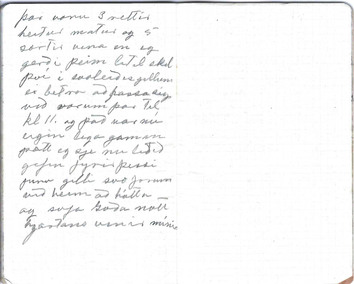 þar voru 3 réttir
heitur matur og 5
sortir vina en eg
gerði þeim lítil skil.
því í svoleiðis gillum
er betra að passa sig
við vorum þar til
kl 11. og það var nú
eigin lega gaman
þótt eg sje nu leðið
gefin fyrir þessi
fínu gilli svo forum
við heim að hátta
og seja Goða nótt
hjartans vinir mínir